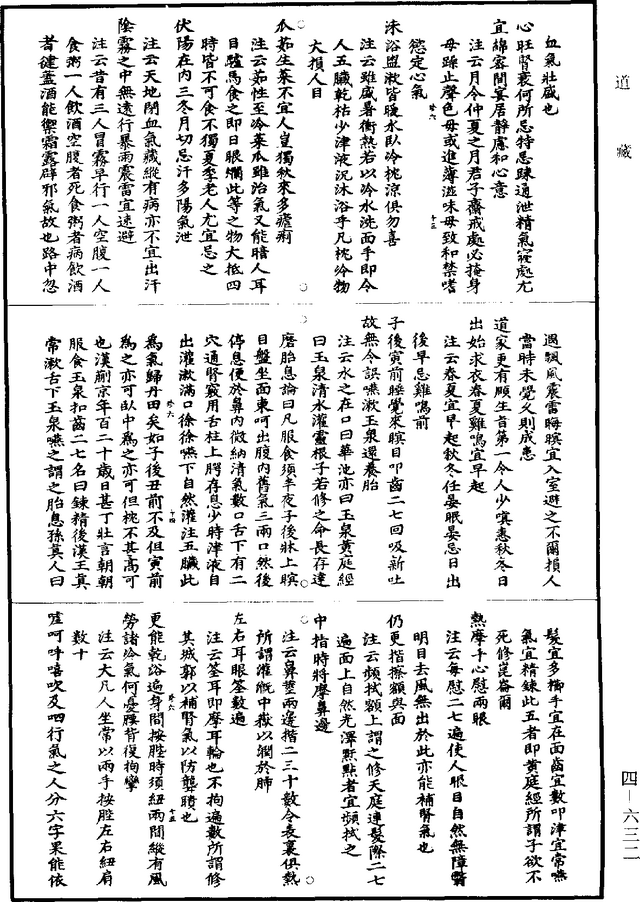 道藏
血氣壯盛也
心旺腎衰何所忌特忌踈通泄精氣寢處尤
宜綿密間宴居靜慮和心意
注云月令仲夏之月君子齋戒處必掩身
毋躁止聲色毋或進薄滋味毋致和禁嗜
慾定心氣
沐浴盥漱皆暖水卧冷枕涼俱勿喜
注云雖盛暑衝熱若以冷水洗面手即令
人五臟乾枯少津液況沐浴乎凡枕冷物
大損人目
瓜茹生菜不宜人豈獨秋來多瘧痢
注云茹性至冷菜瓜雖治氣又能暗人耳
目驢馬食之即日眼爛此等之物大抵四
時皆不可食不獨夏季老人尤宜忌之
伏陽在内三冬月切忌汗多陽氣泄
注云天地閉血氣藏縱有病亦不宜出汗
陰霧之中無遠行暴雨震雷宜遠避
注云昔有三人冒霧早行一人空腹一人
食粥一人飲酒空腹者死食粥者病飲酒
者健蓋酒能禦霜露辟邪氣故也路中忽
遇飄風震雷晦暝宜入室避之不爾損人
當時未覺久則成患
道家更有頤生旨第一令人少嗔恚秋冬日
出始求衣春夏雞鳴宜早起
注云春夏宜早起秋冬任晏眠晏忌日出
後早忌雞鳴前
子後寅前睡覺來瞑目叩齒二七回吸新吐
故無令誤嚥漱玉泉還養胎
注云水之在口曰華池亦曰玉泉黄庭經
曰玉泉清水灌靈根子若修之命長存達
磨胎息論曰凡服食須半夜子後牀上瞑
目盤坐面東呵出腹内舊氣三兩口然後
停息便於鼻内微納清氣數口舌下有二
穴通腎竅用舌柱上腭存息少時津液自
出灌漱滿口徐徐嚥下自然灌注五臟此
為氣歸丹田矣如子後丑前不及但寅前
為之亦可卧中為之亦可但枕不甚高可
也漢蒯京年百二十歲日甚丁壯言朝朝
服食玉泉扣齒二七名曰鍊精後漢王真
常漱舌下玉泉嚥之謂之胎息孫真人曰
髮宜多櫛手宜在面齒宜數叩津宜常嚥
氣宜精鍊此五者即黄庭經所謂子欲不
死修崑崙爾
熱摩手心慰兩眼
注云每慰二七遍使人眼目自然無障翳
明目去風無出於此亦能補腎氣也
仍更揩擦額與面
注云頻拭額上謂之修天庭連髮際二七
遍面上自然光澤䵟點者宜頻拭之
中指時將摩鼻邊
注云鼻莖兩邊揩二三十數令表裏俱熱
所謂灌溉中嶽以潤於肺
左右耳眼筌數遍
注云筌耳即摩耳輪也不拘遍數所謂修
其城郭以補腎氣以防聾聵也
更能乾浴遍身間按䏶時須紐兩間縱有風
勞諸冷氣何憂腰背復拘攣
注云大凡人坐常以兩手按䏶左右紐肩
數十
噓呵呼嘻吹及呬行氣之人分六字果能依
四－六三二